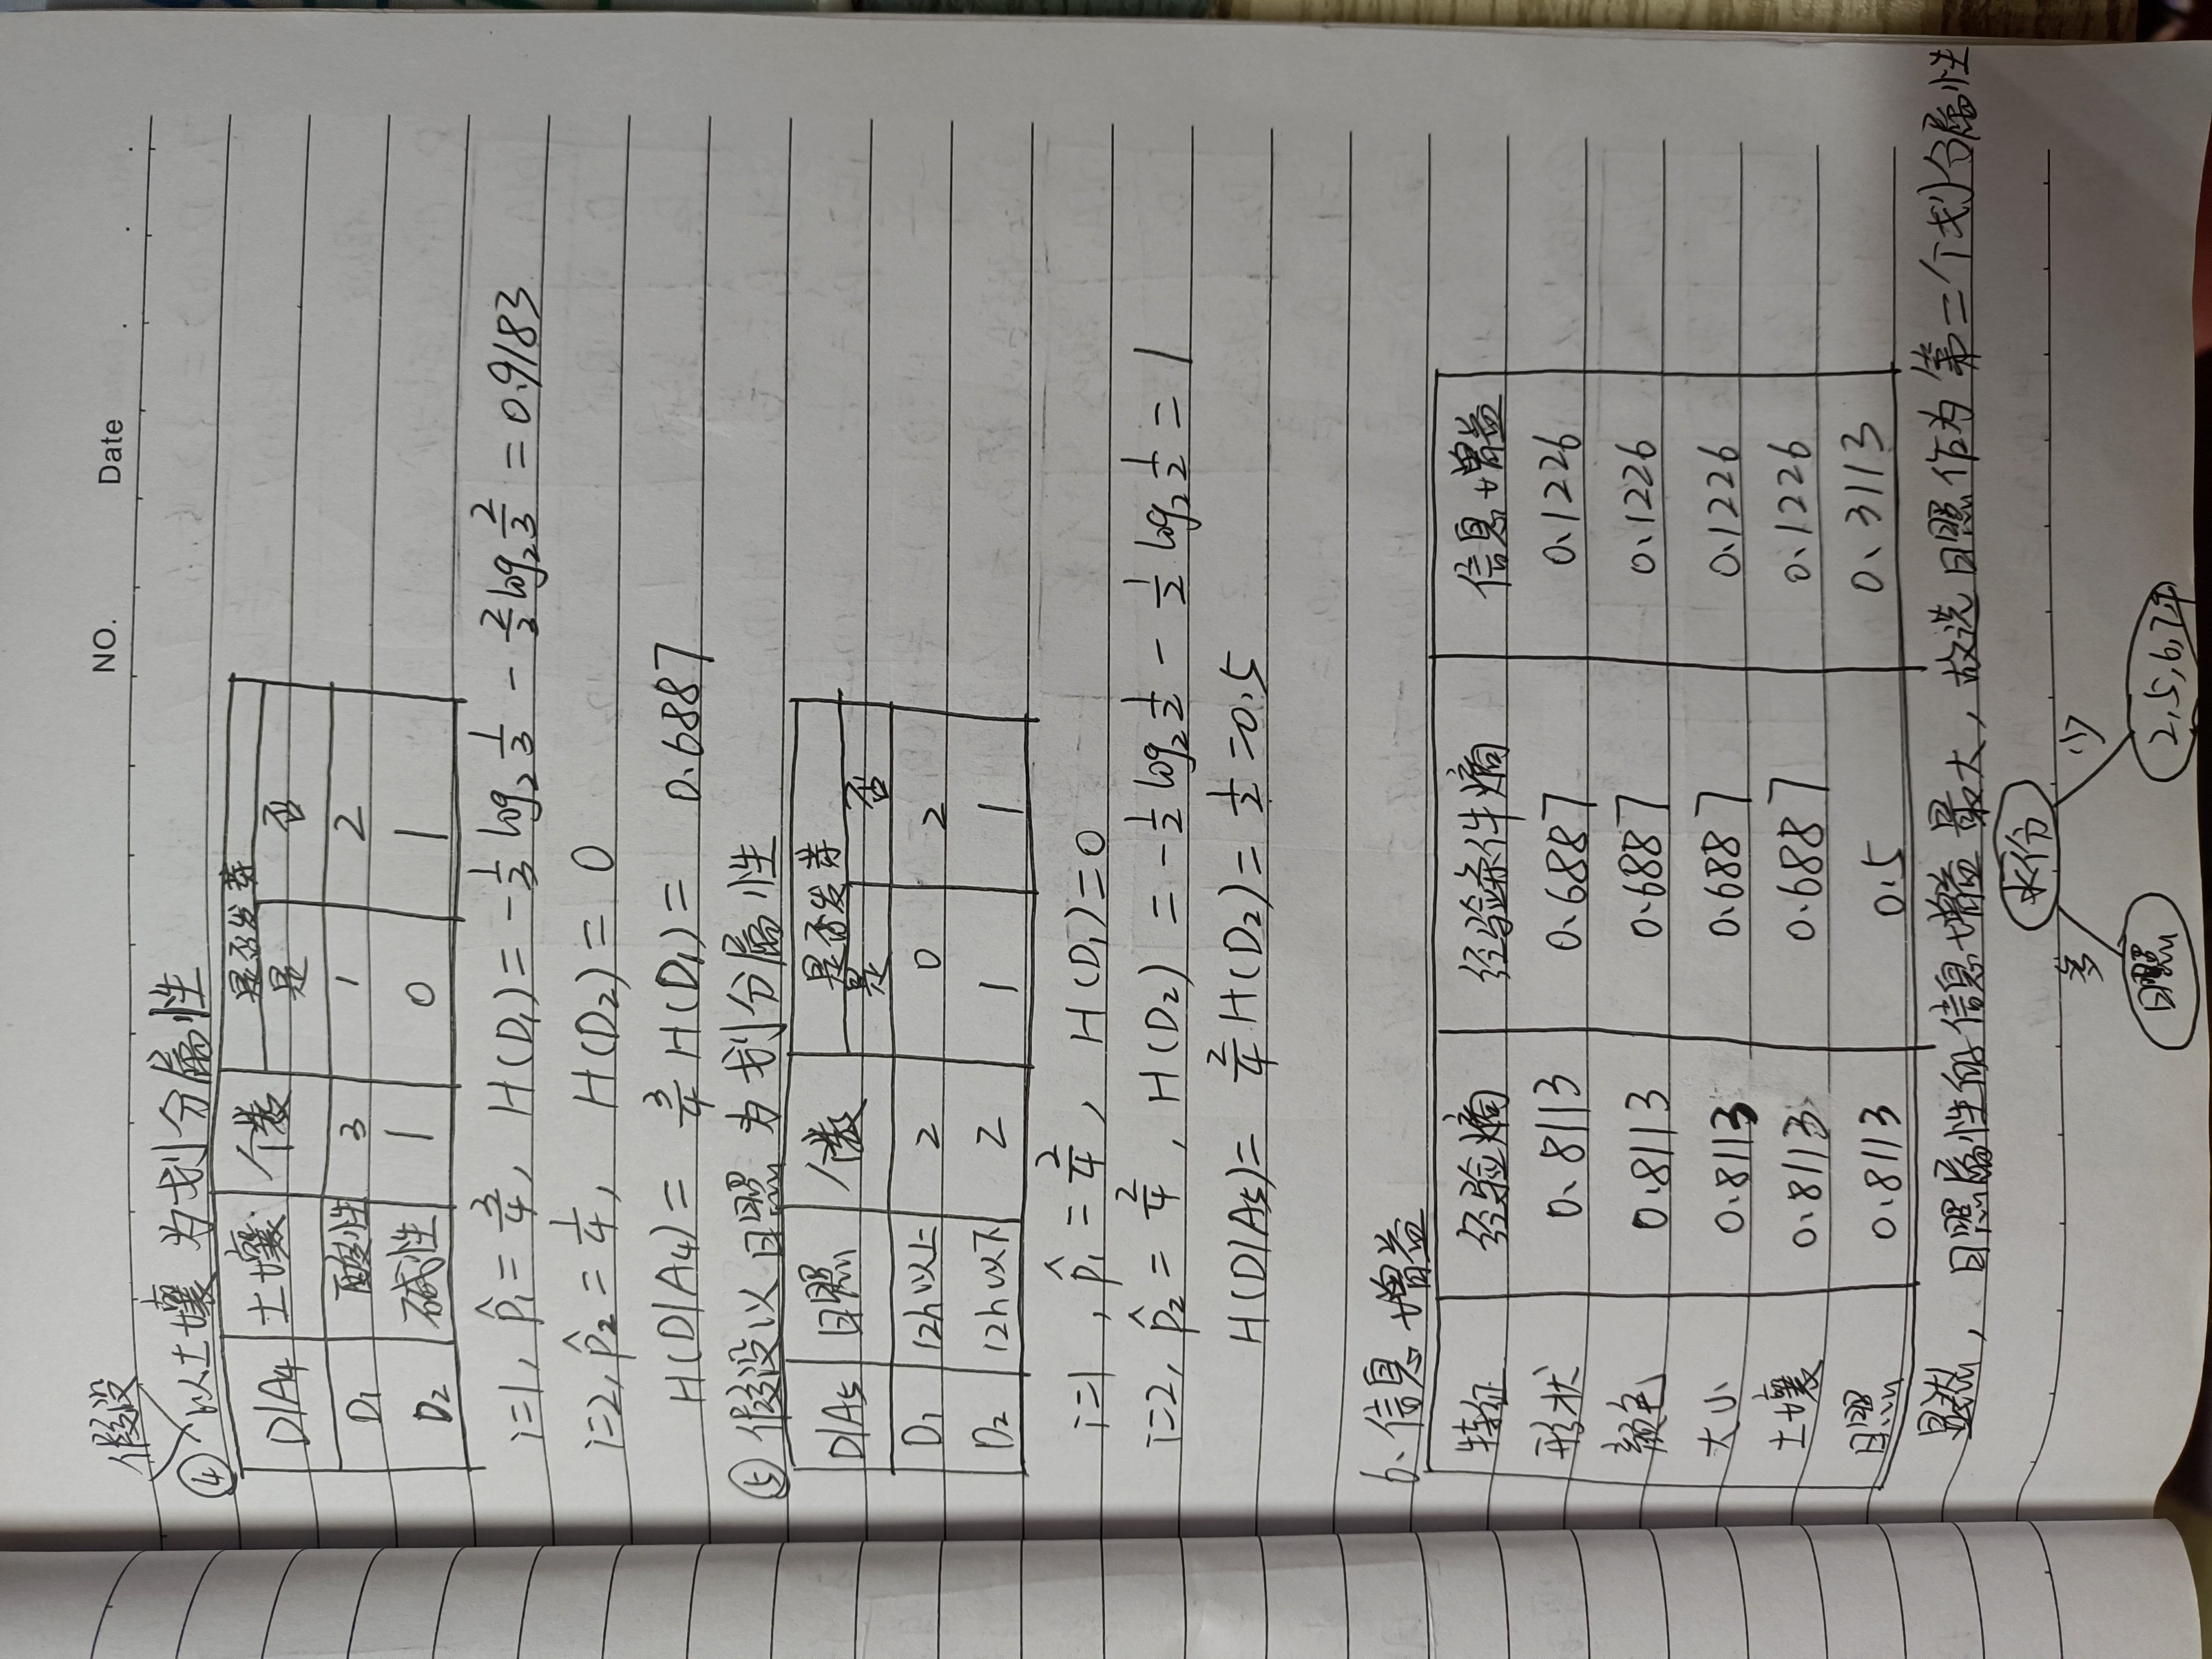 NO.
Date
假设
④ 以土壤 为划分属性
D|A4 土壤 个数 是否发芽
是 否
D1 酸性 3 1 2
D2 碱性 1 0 1
i=1, p̂₁=3/4, H(D₁)=-1/3 log₂ 1/3 - 2/3 log₂ 2/3 = 0.9183
i=2, p̂₂=1/4, H(D₂)=0
H(D|A4)= 3/4 H(D₁)= 0.6887
⑤ 假设以日照 为划分属性
D|A5 日照 个数 是否发芽
是 否
D1 12h以上 2 0 2
D2 12h以下 2 1 1
i=1, p̂₁=2/4, H(D₁)=0
i=2, p̂₂=2/4, H(D₂)=-1/2 log₂ 1/2 - 1/2 log₂ 1/2 = 1
H(D|A5)= 2/4 H(D₂)= 1/2 =0.5
b、信息增益
特征 经验熵 经验条件熵 信息增益
形状 0.8113 0.6887 0.1226
颜色 0.8113 0.6887 0.1226
大小 0.8113 0.6887 0.1226
土壤 0.8113 0.6887 0.1226
日照 0.8113 0.5 0.3113
显然, 日照属性的信息增益最大, 故选日照作为第二个划分属性
水份
多 少
日照 2,5,6,7